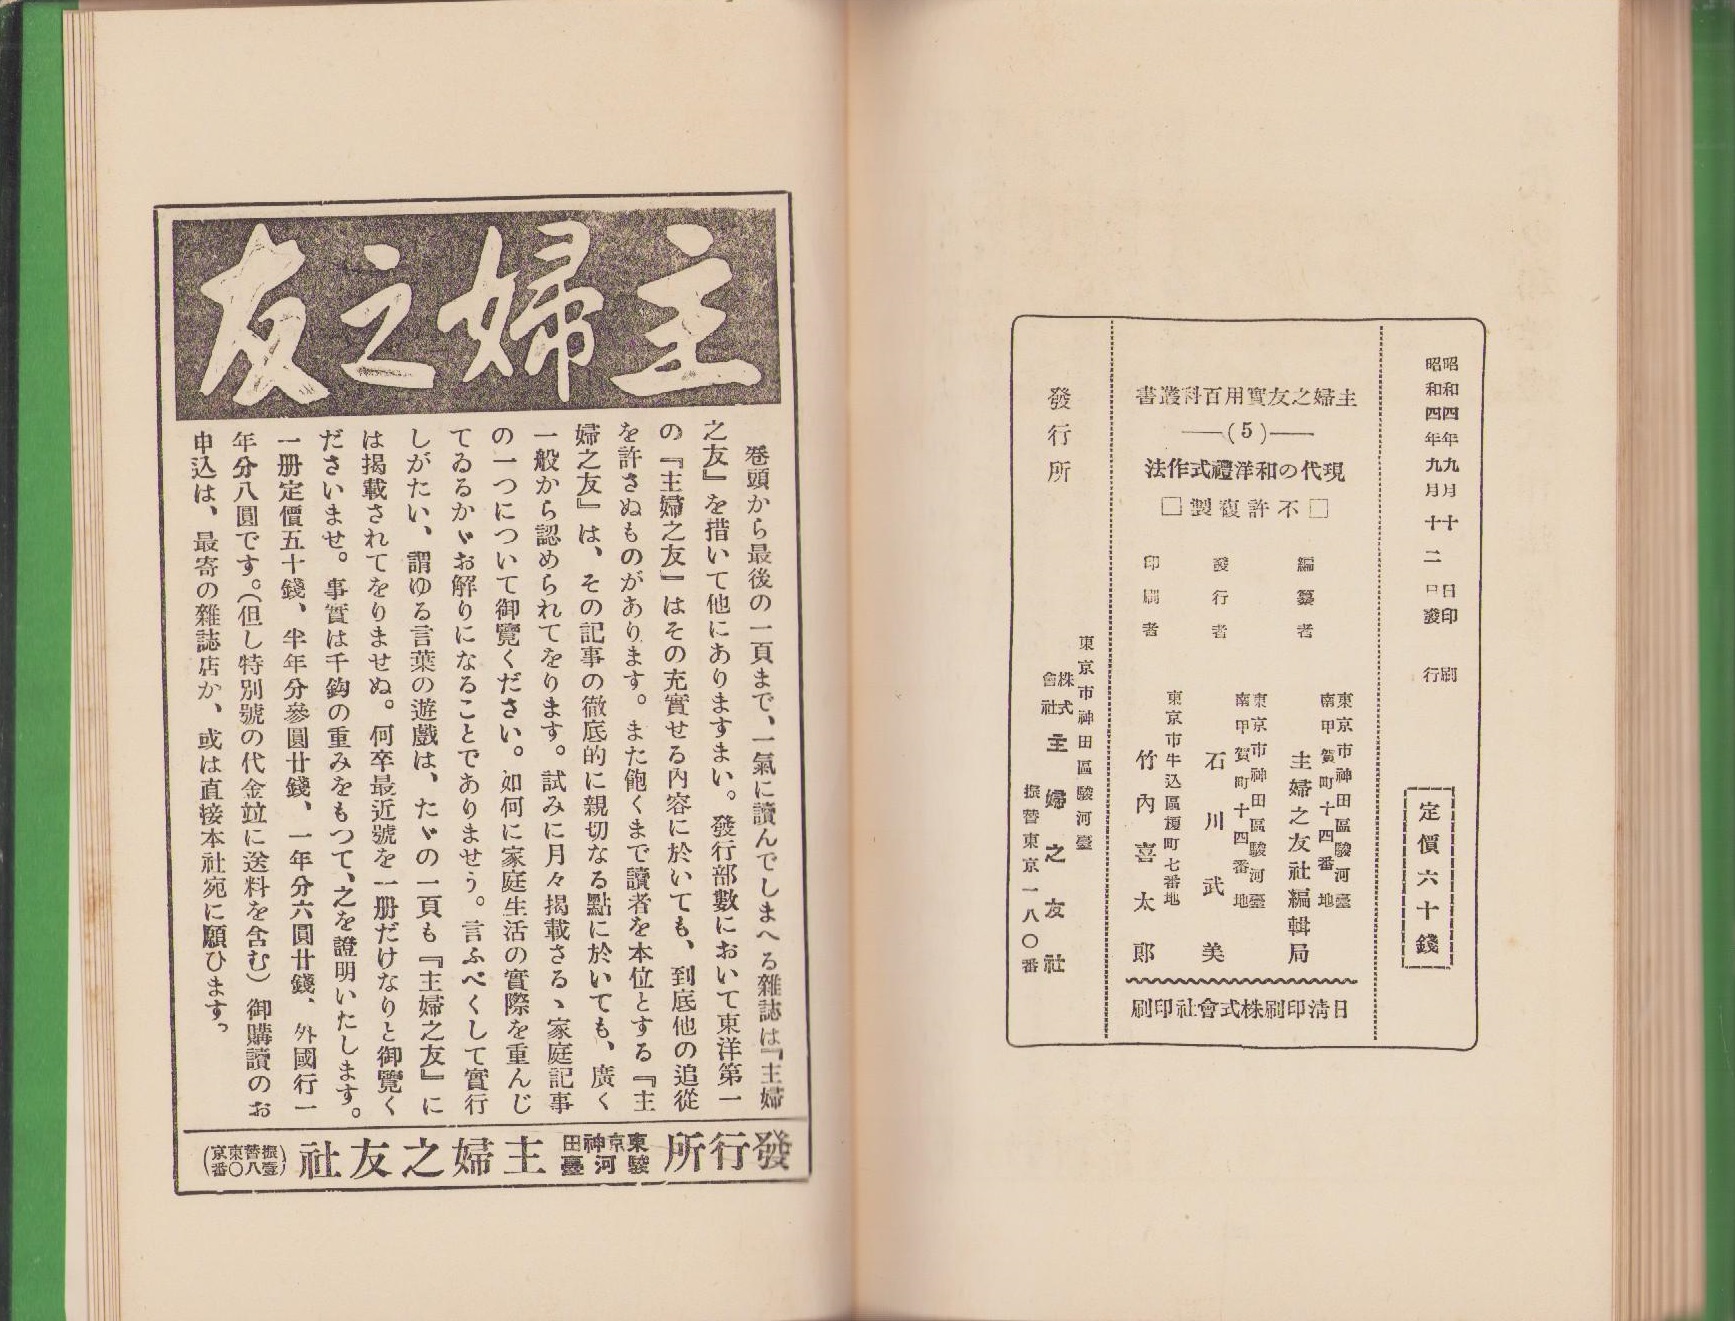 昭和四年九月十日印刷
昭和四年九月十二日發行
定價六十錢
主婦之友實用百科叢書
(5)
現代の和洋禮式作法
□不許複製□
編纂者
東京市神田區駿河臺
南甲賀町十四番地
主婦之友社編輯局
發行者
東京市神田區駿河臺
南甲賀町十四番地
石川武美
印刷者
東京市牛込區榎町七番地
竹內喜太郎
日清印刷株式會社印刷
發行所
東京市神田區駿河臺
株式會社 主婦之友社
振替東京一八〇番
主婦之友
卷頭から最後の一頁まで、一氣に讀んでしまへる雜誌は『主婦
之友』を措いて他にありますまい。發行部數において東洋第一
の『主婦之友』はその充實せる內容に於いても、到底他の追從
を許さぬものがあります。また飽くまで讀者を本位とする『主
婦之友』は、その記事の徹底的に親切なる點に於いても、廣く
一般から認められてをります。試みに月々揭載さるゝ家庭記事
の一つについて御覽ください。如何に家庭生活の實際を重んじ
てゐるかゞお解りになることでありませう。言ふべくして實行
しがたい、謂ゆる言葉の遊戲は、たゞの一頁も『主婦之友』に
は揭載されてをりませぬ。何卒最近號を一册だけなりと御覽く
ださいませ。事實は千鈞の重みをもつて、之を證明いたします。
一册定價五十錢、半年分參圓廿錢、一年分六圓廿錢、外國行一
年分八圓です。(但し特別號の代金竝に送料を含む)御購讀のお
申込は、最寄の雜誌店か、或は直接本社宛に願ひます。
發行所 東京神田駿河臺 主婦之友社 (振替東京壹八〇番)